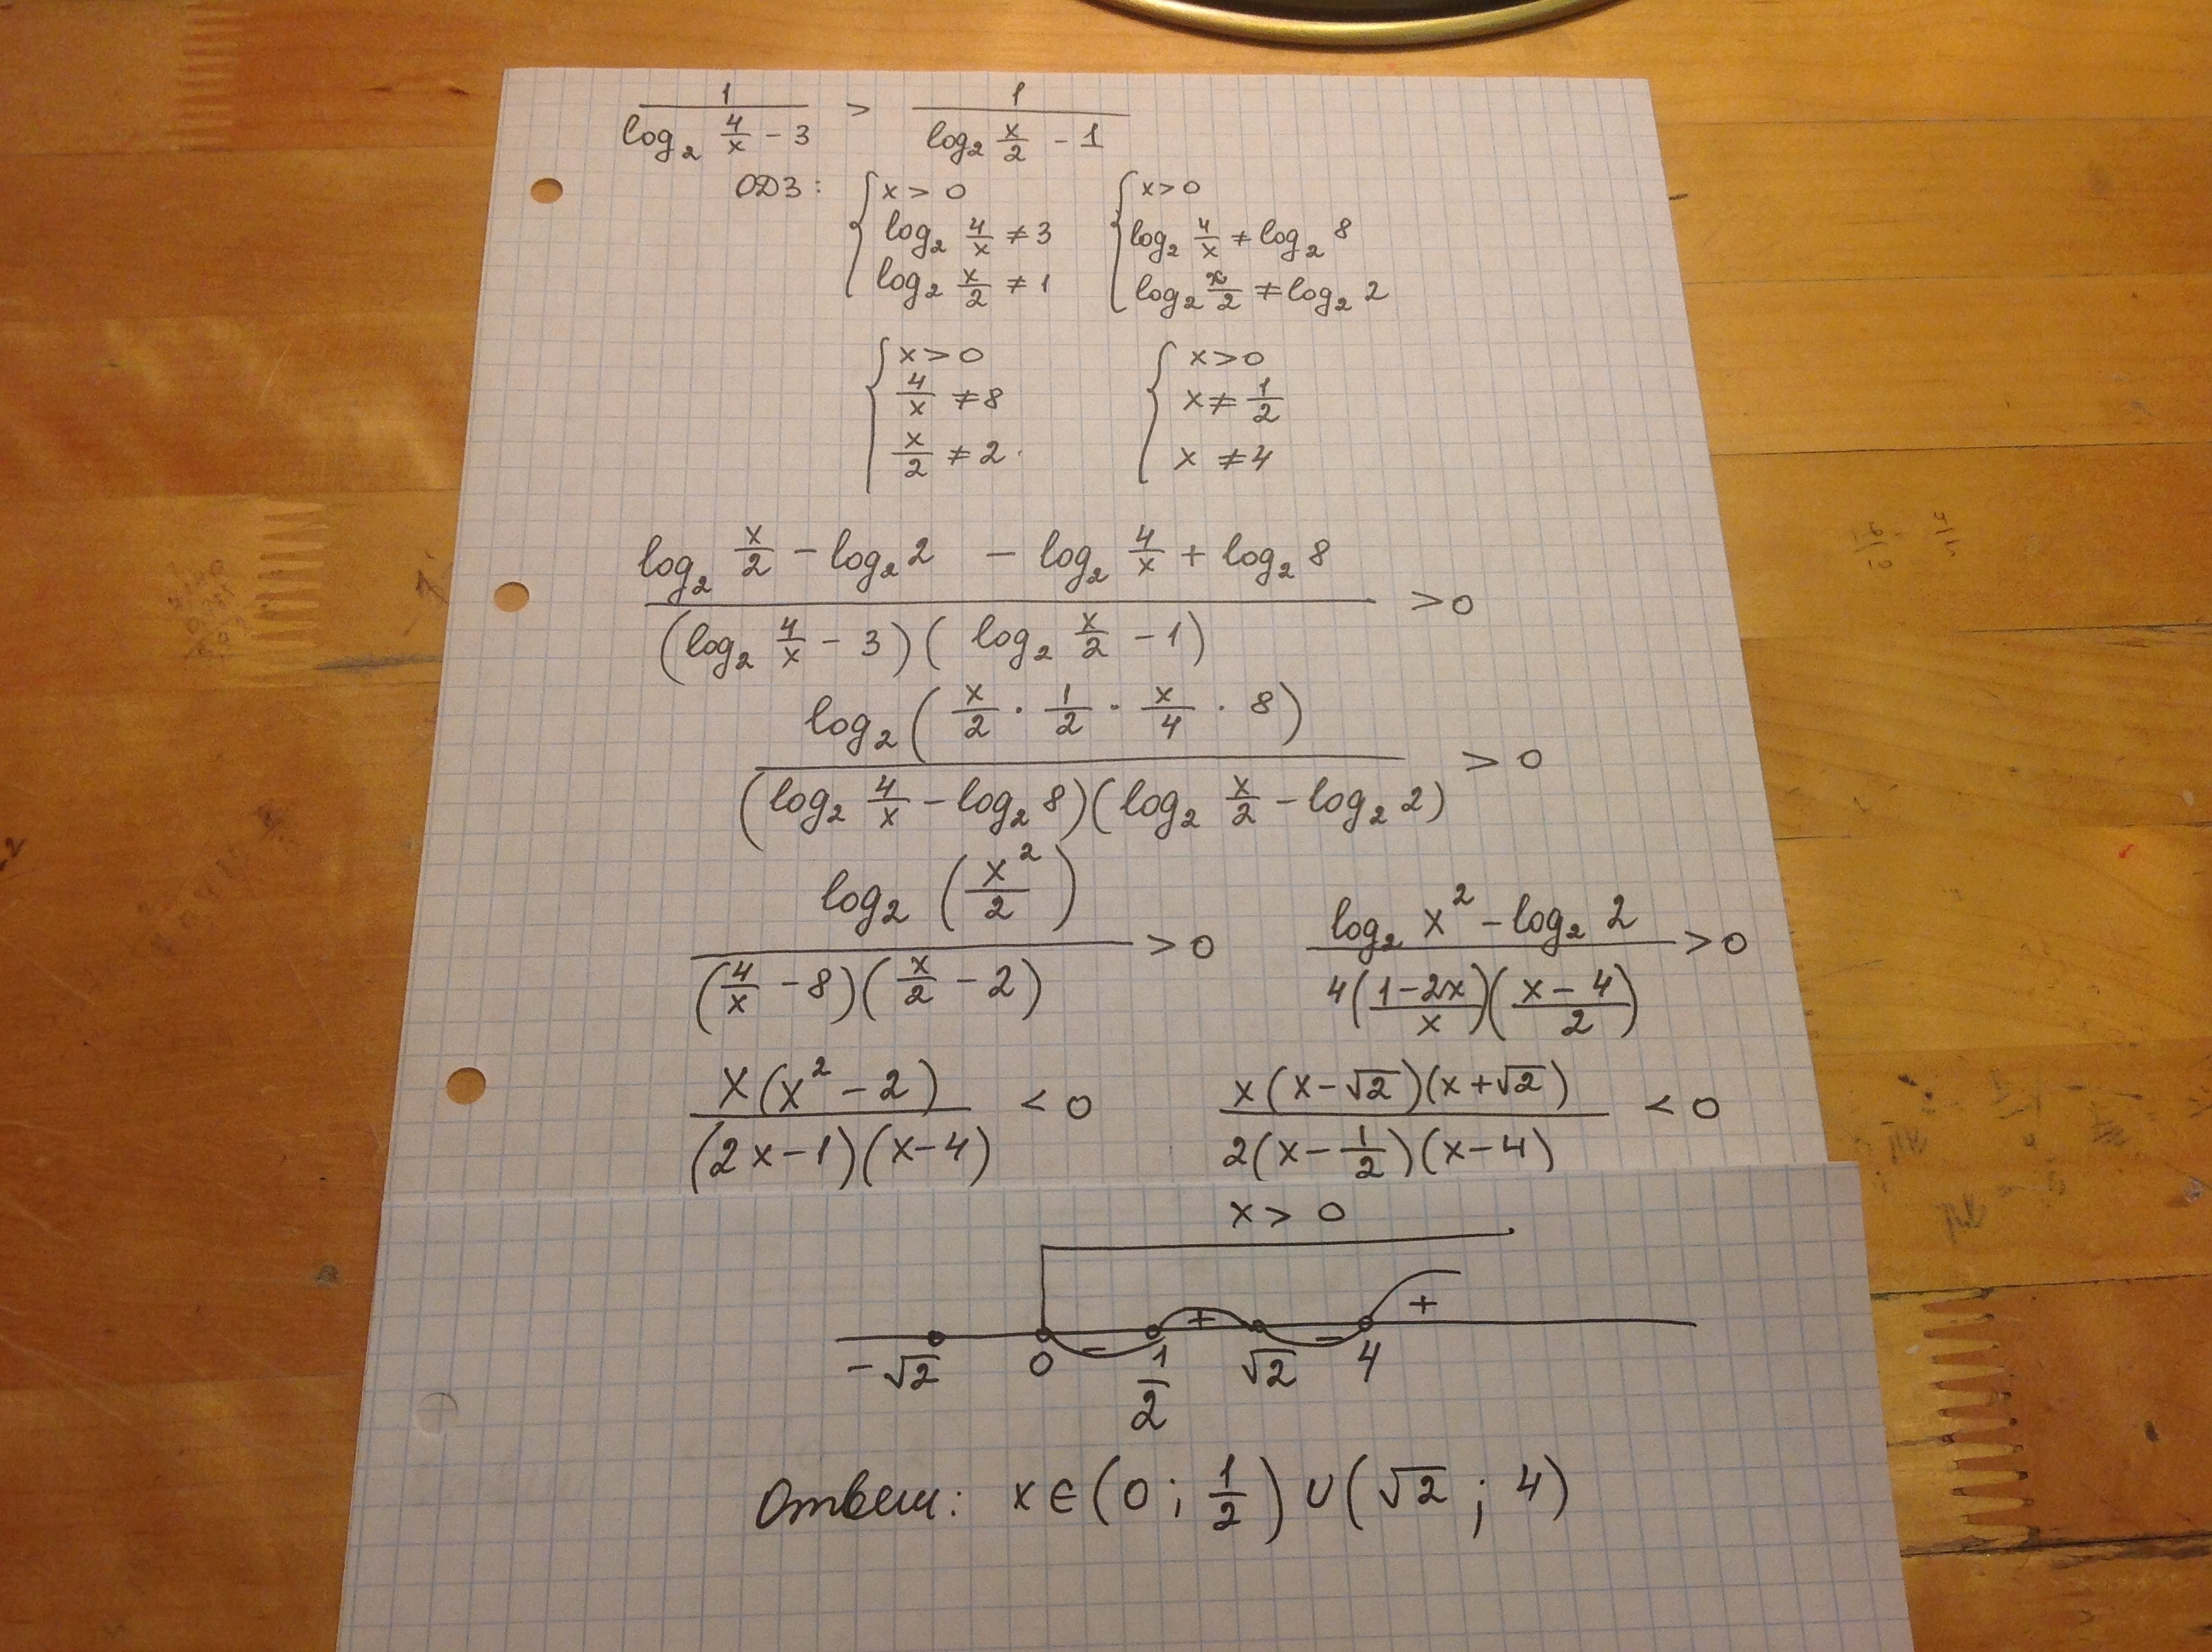 1/(log₂ 4/x - 3) > 1/(log₂ x/2 - 1)
ОДЗ: { x > 0 { x > 0
log₂ 4/x ≠ 3 log₂ 4/x ≠ log₂ 8
log₂ x/2 ≠ 1 log₂ x/2 ≠ log₂ 2
{ x > 0 { x > 0
4/x ≠ 8 x ≠ 1/2
x/2 ≠ 2 x ≠ 4
(log₂ x/2 - log₂ 2 - log₂ 4/x + log₂ 8)/((log₂ 4/x - 3)(log₂ x/2 - 1)) > 0
log₂(x/2 · 1/2 · x/4 · 8)/((log₂ 4/x - log₂ 8)(log₂ x/2 - log₂ 2)) > 0
log₂(x²/2)/((4/x - 8)(x/2 - 2)) > 0 (log₂ x² - log₂ 2)/(4((1-2x)/x)((x-4)/2)) > 0
x(x² - 2)/((2x-1)(x-4)) < 0 x(x-√2)(x+√2)/(2(x-1/2)(x-4)) < 0
x > 0
- + - +
-√2 0 1/2 √2 4
Ответ: x ∈ (0; 1/2) ∪ (√2; 4)